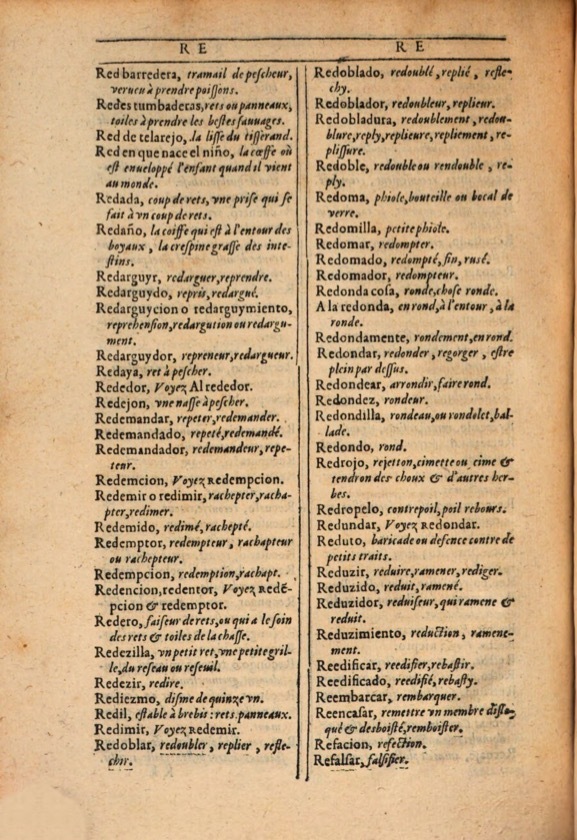 R E
Red barredera, tramail de pescheur,
verueu à prendre poiſſons.
Redes tumbaderas, rets ou panneaux,
toiles à prendre les beſtes ſauuages.
Red de telarejo, la liſſe du tiſſerand.
Red en que nace el niño, la cœffe où
eſt enueloppé l'enfant quand il vient
au monde.
Redada, coup de rets, vne priſe qui ſe
fait à vn coup de rets.
Redaño, la coiffe qui eſt à l'entour des
boyaux, la creſpine graſſe des inte-
ſtins.
Redarguyr, redarguer, reprendre.
Redarguydo, repris, redargué.
Redarguycion o redarguymiento,
reprehenſion, redargution ou redargu-
ment.
Redarguydor, repreneur, redargueur.
Redaya, ret à peſcher.
Rededor, Voyez Al rededor.
Redejon, vne naſſe à peſcher.
Redemandar, repeter, redemander.
Redemandado, repeté, redemandé.
Redemandador, redemandeur, repe-
teur.
Redemcion, Voyez Redempcion.
Redemir o redimir, rachepter, racha-
pter, redimer.
Redemido, redimé, rachepté.
Redemptor, redempteur, rachapteur
ou rachepteur.
Redempcion, redemption, rachapt.
Redencion, redentor, Voyez Redē-
pcion & redemptor.
Redero, faiſeur de rets, ou qui a le ſoin
des rets & toiles de la chaſſe.
Redezilla, vn petit ret, vne petite gril-
le, du reſeau ou reſeuil.
Redezir, redire.
Rediezmo, diſme de quinze vn.
Redil, eſtable à brebis: rets, panneaux.
Redimir, Voyez Redemir.
Redoblar, redoubler, replier, refle-
chir.
R E
Redoblado, redoublé, replié, refle-
chy.
Redoblador, redoubleur, replieur.
Redobladura, redoublement, redou-
blure, reply, replieure, repliement, re-
pliſſure.
Redoble, redouble ou rendouble, re-
ply.
Redoma, phiole, bouteille ou bocal de
verre.
Redomilla, petite phiole.
Redomar, redompter.
Redomado, redompté, fin, ruſé.
Redomador, redompteur.
Redonda coſa, ronde, choſe ronde.
A la redonda, en rond, à l'entour, à la
ronde.
Redondamente, rondement, en rond.
Redondar, redonder, regorger, eſtre
plein par deſſus.
Redondear, arrondir, faire rond.
Redondez, rondeur.
Redondilla, rondeau, ou rondelet, bal-
lade.
Redondo, rond.
Redrojo, rejetton, cimette ou cime &
tendron des choux & d'autres her-
bes.
Redropelo, contrepoil, poil rebours.
Redundar, Voyez Redondar.
Reduto, baricade ou defence contre de
petits traits.
Reduzir, reduire, ramener, rediger.
Reduzido, reduit, ramené.
Reduzidor, reduiſeur, qui ramene &
reduit.
Reduzimiento, reduction, ramene-
ment.
Reedificar, reedifier, rebaſtir.
Reedificado, reedifié, rebaſty.
Reembarcar, rembarquer.
Reencaſar, remettre vn membre diſlo-
qué & desboiſté, remboiſter.
Refacion, refection.
Refalſar, falſifier.